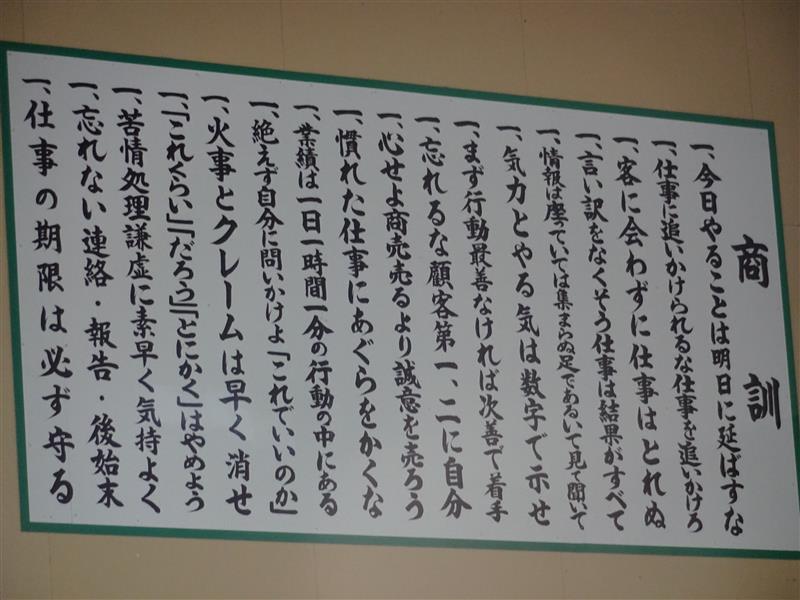 商訓
一、今日やることは明日に延ばすな
一、仕事に追いかけられるな仕事を追いかけろ
一、客に会わずに仕事はとれぬ
一、言い訳をなくそう仕事は結果がすべて
一、情報は座っていては集まらぬ足であるいて見て聞いて
一、気力とやる気は数字で示せ
一、まず行動最善なければ次善で着手
一、忘れるな顧客第一、二に自分
一、心せよ商売売るより誠意を売ろう
一、慣れた仕事にあぐらをかくな
一、業績は一日一時間一分の行動の中にある
一、絶えず自分に問いかけよ「これでいいのか」
一、火事とクレームは早く消せ
一、「これくらい」「だろう」「とにかく」はやめよう
一、苦情処理謙虚に素早く気持よく
一、忘れない連絡・報告・後始末
一、仕事の期限は必ず守る